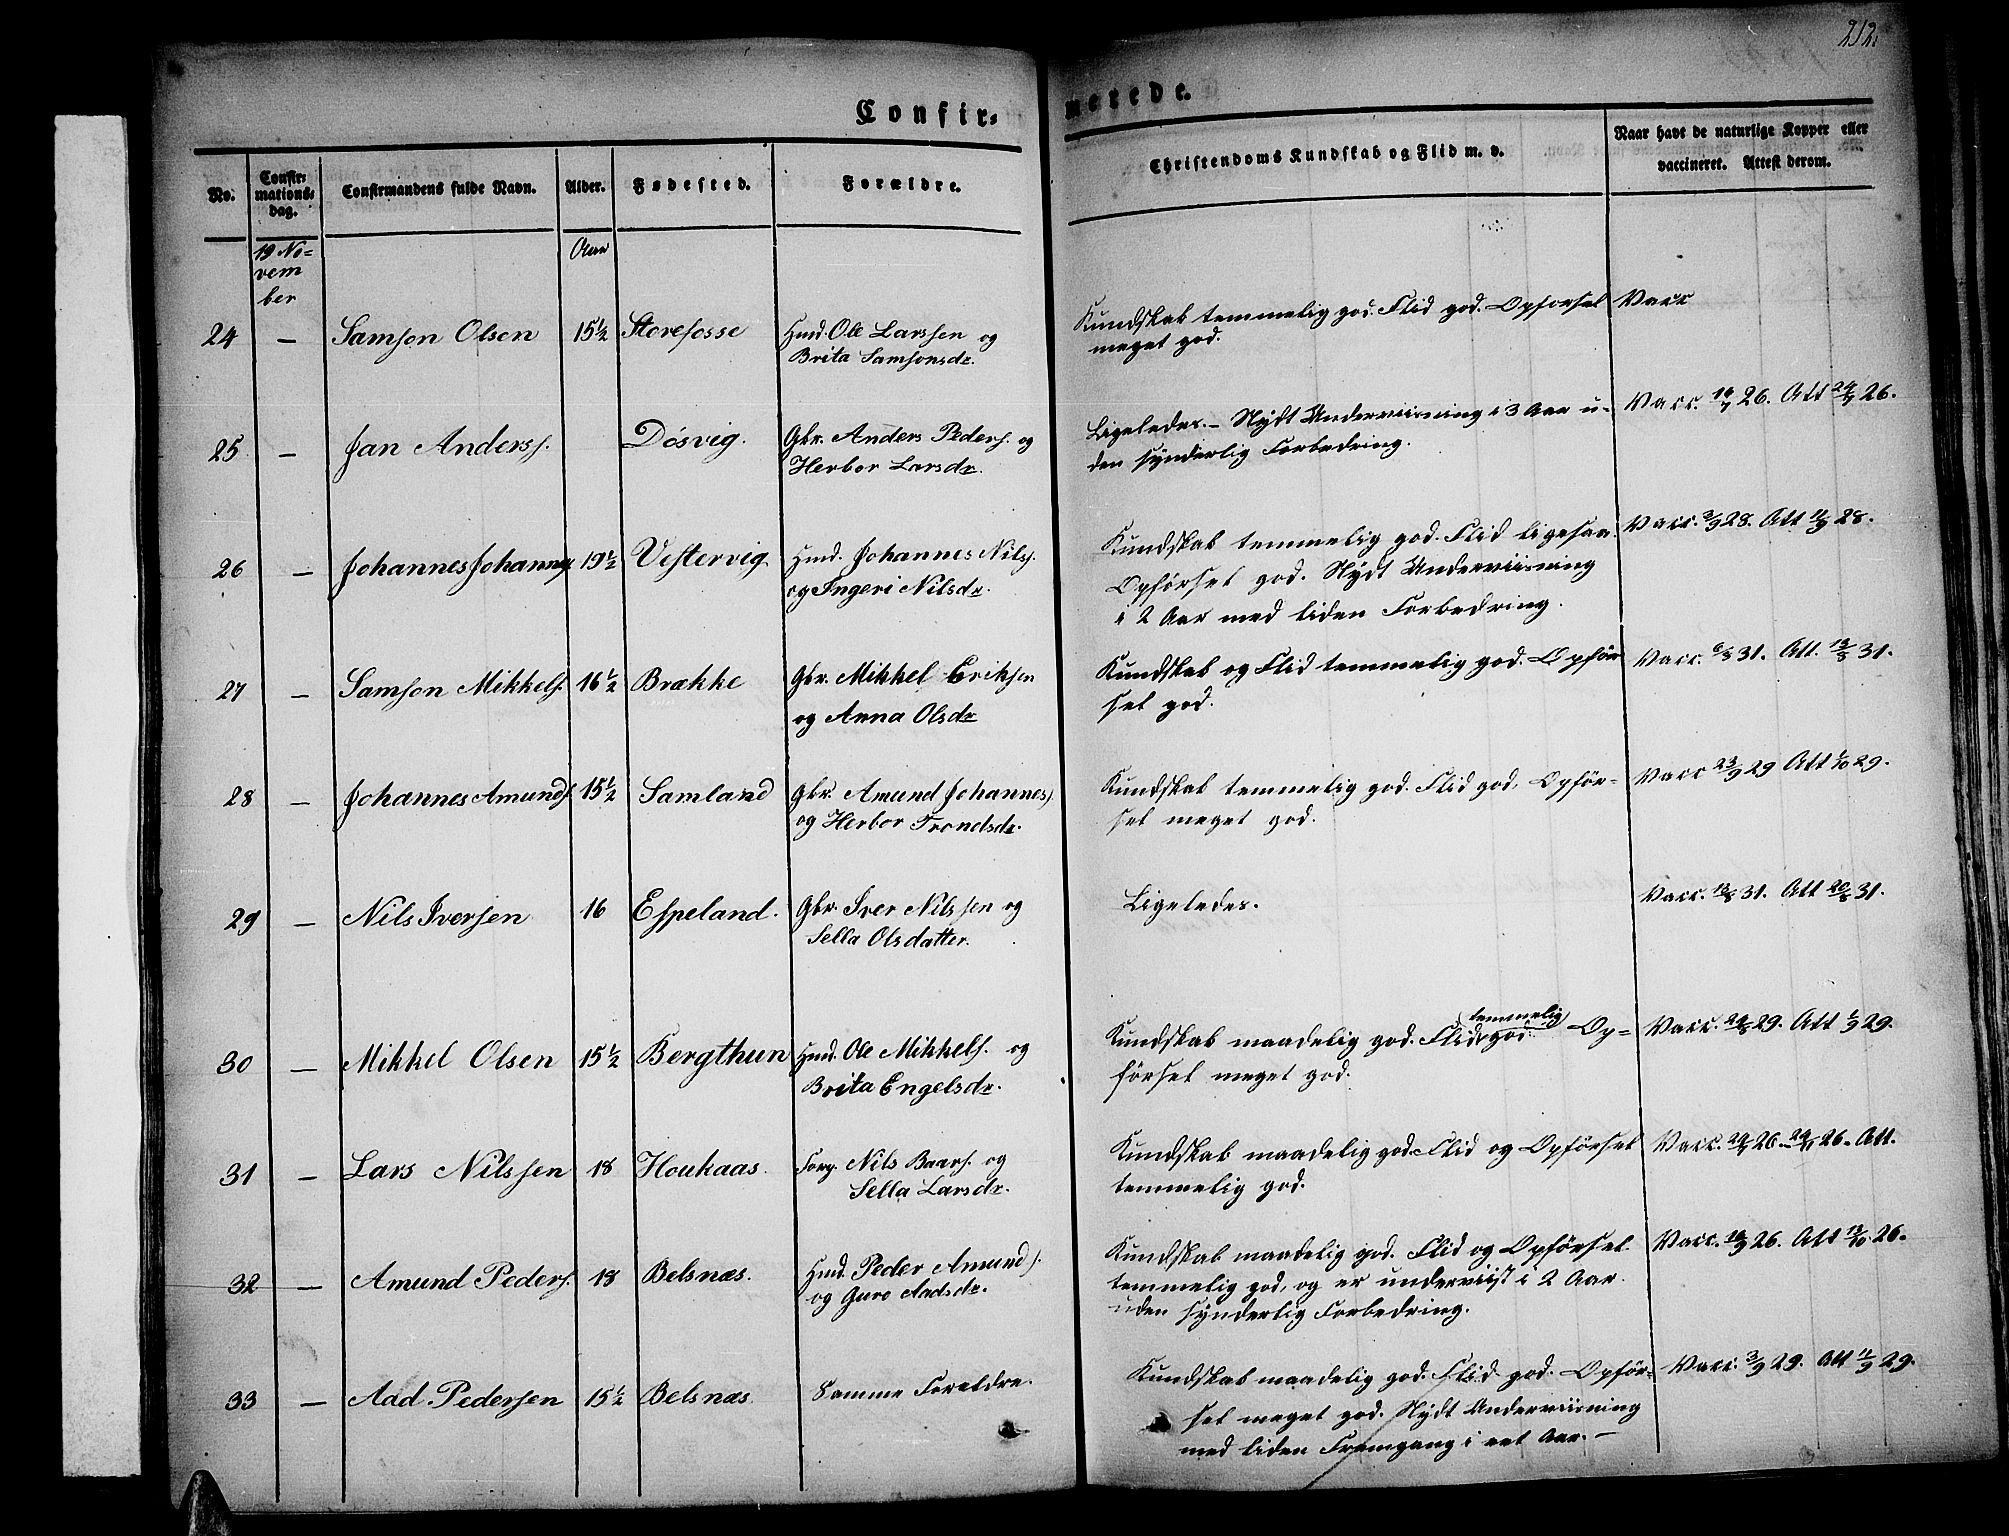 212.
Confir=
merede.
No.
Confir=
mations=
dag.
Confirmandens fulde Navn.
Alder.
Fødested.
Forældre.
Christendoms Kundskab og Flid m. v.
Naar havt de naturlige Kopper eller
vaccineret. Attest derom.
19 No=
vem
ber
Aar
24 — Samson Olsen 15½ Storefosse Hmd. Ole Larssen og
Brita Samsonsdr.
Kundskab temmelig god. Flid god. Opførsel
meget god.
Vacc
25 — Jan Anderss. Dósvig. Gbr. Anders Peders. og
Herbor Larsdr.
Ligeledes. – Nydt Underviisning i 3 Aar u-
den synderlig Forbedring.
Vacc. 26. Att 26.
26 — Johannes Johanness 19½ Vestervig Hmd. Johannes Nilss.
og Ingeri Nilsdr.
Kundskab temmelig god. Flid ligesaa.
Opførsel god. Nydt Underviisning
i 2 Aar med liden Forbedring.
Vacc. 3/9 28. Att 11/9 28.
27 — Samson Mikkels. 16½ Brække Gbr. Mikkel Eriksen
og Anna Olsdr
Kundskab og Flid temmelig god. Opfør
sel god.
Vacc. 6/8 31. Att. 13/8 31.
28 — Johannes Amunds. 15½ Samland Gbr. Amund Johanness.
og Herbor Trondsdr.
Kundskab temmelig god. Flid god. Opfør-
sel meget god.
Vacc 23/9 29 Att 1/10 29.
29 — Nils Iversen 16 Espeland. Gbr. Iver Nilssen og
Sella Olsdatter.
Ligeledes.
Vacc. 13/8 31. Att 20/8 31.
30 — Mikkel Olsen 15½ Bergthun Hmd. Ole Mikkels. og
Brita Engelsdr.
Kundskab maadelig god. Flid temmelig god. Op=
førsel meget god.
Vacc. 24/8 29. Att 1/9 29.
31 — Lars Nilssen 18 Houkaas. Forp. Nils Baars. og
Sella Larsdr.
Kundskab maadelig god. Flid og Opførsel
temmelig god.
Vacc. 26. 26. Att.
32 — Amund Peders. 18 Belsnæs. Hmd. Peder Amunds.
og Guro Aadsdr.
Kundskab maadelig god. Flid og Opførsel
temmelig god, og er underviist i 2 Aar
uden synderlig Forbedring.
Vacc. 26. Att 26.
33 — Aad Pedersen 15½ Belsnæs. Samme Forældre.
Kundskab maadelig god. Flid god. Opfør-
sel meget god. Nydt Underviisning
med liden Fremgang i eet Aar. –
Vacc. 3/9 29. Att 11/9 29.